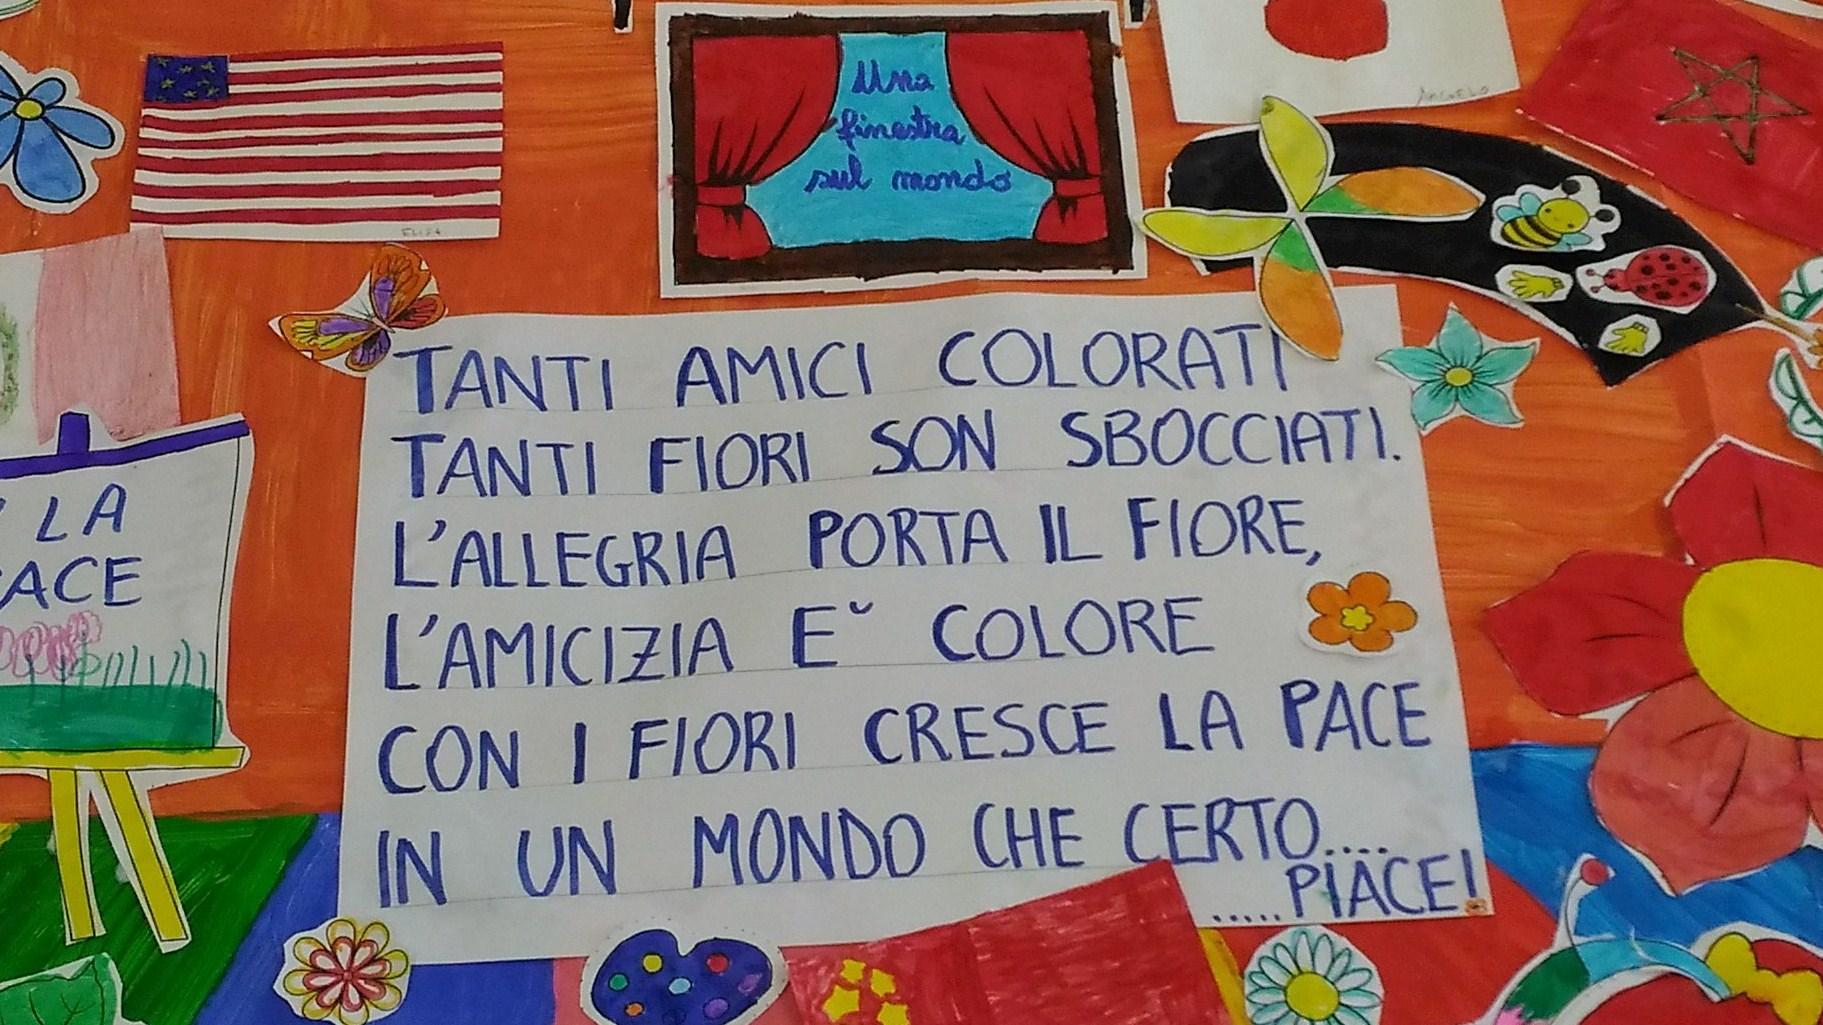 Una
finestra
sul mondo
ELISA
LA
ACE
TANTI AMICI COLORATI
TANTI FIORI SON SBOCCIATI.
L'ALLEGRIA PORTA IL FIORE,
L'AMICIZIA E' COLORE
CON I FIORI CRESCE LA PACE
IN UN MONDO CHE CERTO....
.....PIACE!